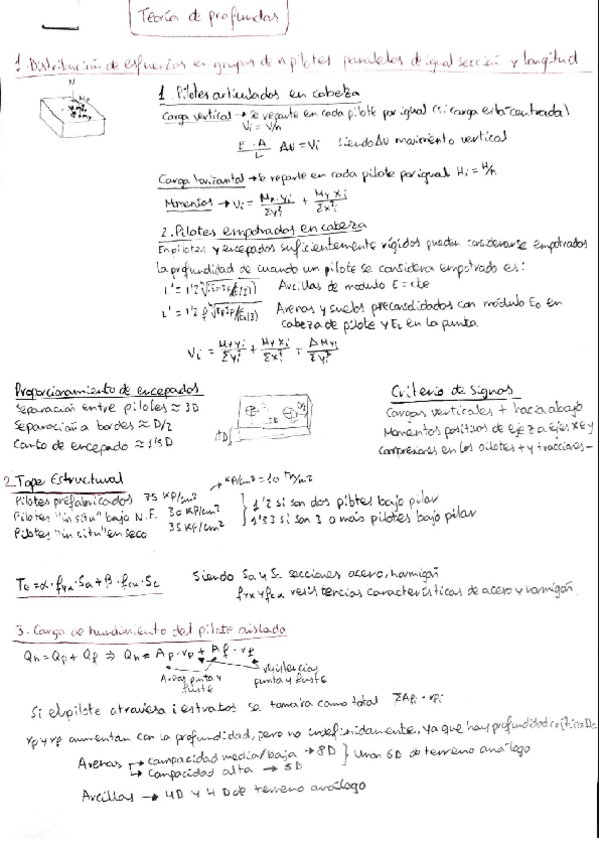 Teoría de profundas
1. Distribución de esfuerzos en grupos de n pilotes paralelos de igual sección y longitud
N
1. Pilotes articulados en cabeza
Carga vertical → se reparte en cada pilote por igual (si carga está centrada)
Vi = V/n
E·A/L Δv = Vi siendo Δv movimiento vertical
Carga horizontal → se reparte en cada pilote por igual Hi = H/n
Momentos → Vi = Mx·yi/Σyi² + My xi/Σxi²
2. Pilotes empotrados en cabeza
En pilotes y encepados suficientemente rígidos pueden considerarse empotrados
la profundidad de cuando un pilote se considera empotrado es:
Arcillas de modulo E = cte
Arenas y suelos preconsolidados con módulo E0 en
cabeza de pilote y EL en la punta
Proporcionamiento de encepados
Separación entre pilotes ≈ 3D
Separación a bordes ≈ D/2
Canto de encepado ≈ 1'5D
Criterio de Signos
Cargas verticales + hacia abajo
Momentos positivos de eje z a ejes x e y
Compresiones en los pilotes + y tracciones -
2. Tope Estructural
KP/cm² = 10 Tn/m²
Pilotes prefabricados 75 KP/cm²
Pilotes "in situ" bajo N.F. 30 KP/cm²
Pilotes "in situ" en seco 35 KP/cm²
1'2 si son dos pilotes bajo pilar
1'33 si son 3 o más pilotes bajo pilar
Te = α·fyk·Sa + β·fck·Sc
Siendo Sa y Sc secciones acero, hormigón
fyk y fck resistencias características de acero y hormigón
3. Carga de hundimiento del pilote aislado
Qh = Qp + Qf ⇒ Qh = Ap·rp + Af·rf
Áreas punta y fuste
resistencias punta y fuste
Si el pilote atraviesa i estratos se tomara como total ΣAfi·rfi
rp y rf aumentan con la profundidad, pero no indefinidamente, ya que hay profundidad crítica Dc
Arenas → compacidad media/baja → 8D } Unon 6D de terreno análogo
→ Compacidad alta → 5D
Arcillas → 4D y 4D de terreno análogo